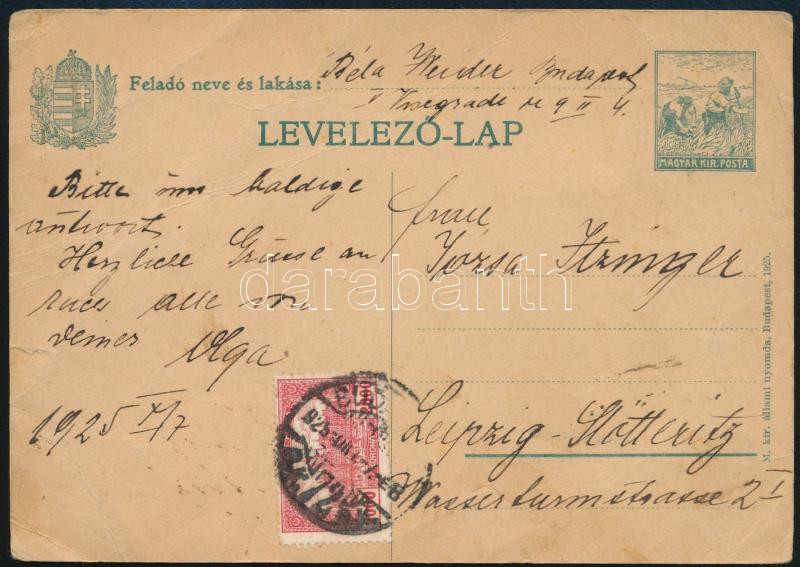 Feladó neve és lakása: Béla Weider Budapest
V 9 II 4.
LEVELEZŐ-LAP
MAGYAR KIR. POSTA
Bitte um baldige
antwort.
Herzliche Grüsse an
euch alle von
deiner
Olga
1925 X/7
frau
Józsa Itzinger
Leipzig-Stötteritz
Wasserturmstrasse 2 I
M. kir. állami nyomda. Budapest, 1925.
darabanth